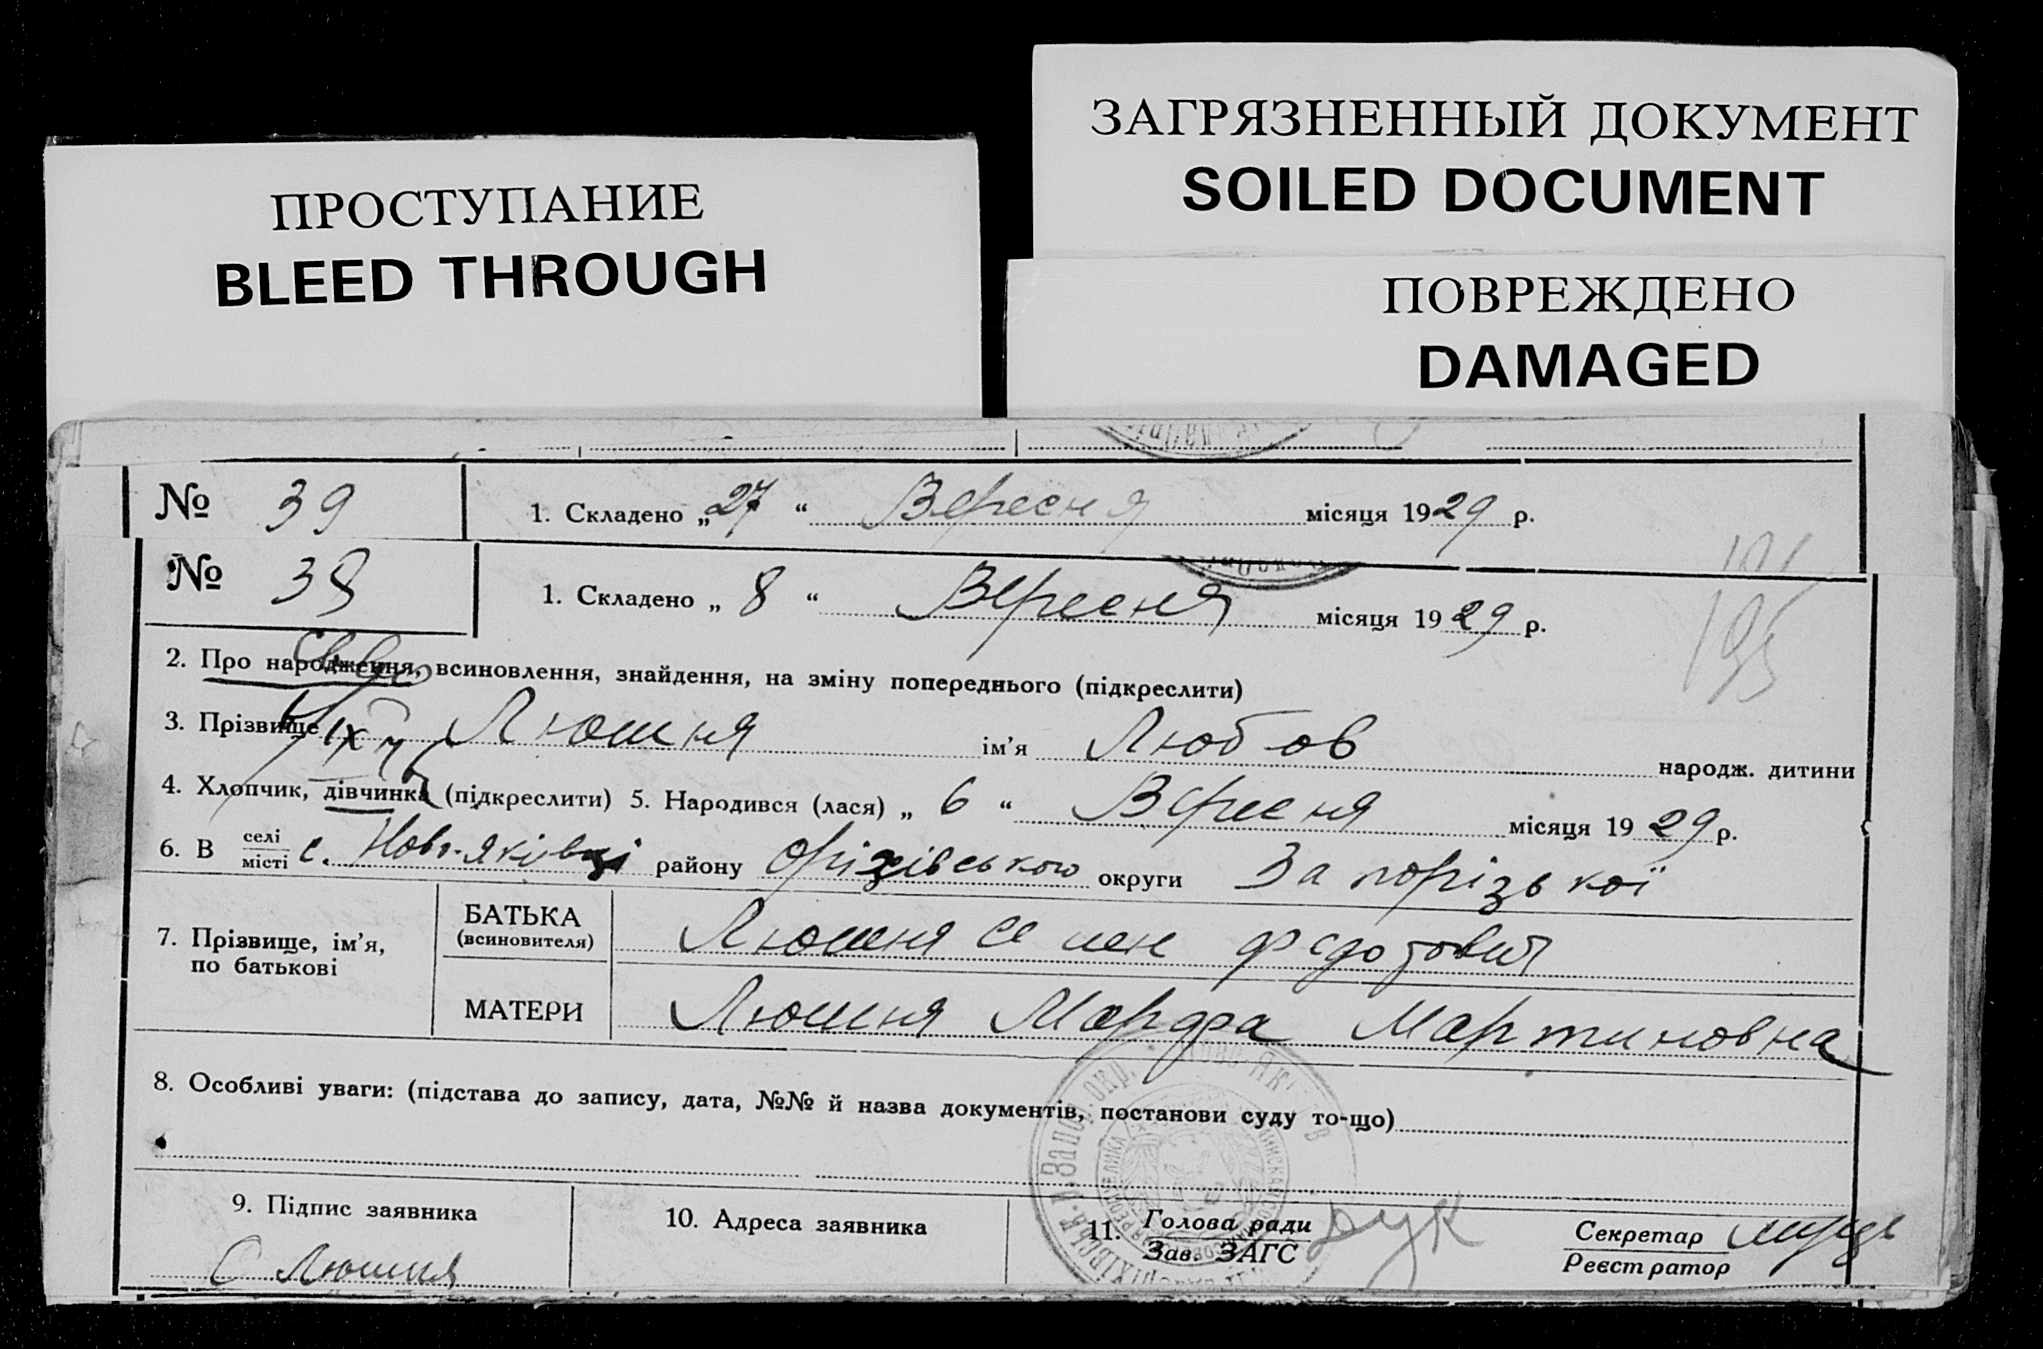 ЗАГРЯЗНЕННЫЙ ДОКУМЕНТ
SOILED DOCUMENT
ПРОСТУПАНИЕ
BLEED THROUGH
ПОВРЕЖДЕНО
DAMAGED
№ 39 1. Складено „27“ Вересня місяця 1929 р.
№ 38 1. Складено „ 8 “ Вересня місяця 1929 р.
195
2. Про народження, всиновлення, знайдення, на зміну попереднього (підкреслити)
3. Прізвище Люшня ім’я Любов народж. дитини
4. Хлопчик, дівчинка (підкреслити) 5. Народився (лася) „ 6 “ Вересня місяця 1929 р.
6. В селі місті с. Ново-Яківці району Оріхівського округи Запорізької
7. Прізвище, ім’я, по батькові
БАТЬКА (всиновителя) Люшня Семен Федотович
МАТЕРИ Люшня Марфа Мартиновна
8. Особливі уваги: (підстава до запису, дата, №№ й назва документів, постанови суду то-що)
9. Підпис заявника 10. Адреса заявника 11. Голова ради Зав. ЗАГС Секретар Реєстратор
С Люшня